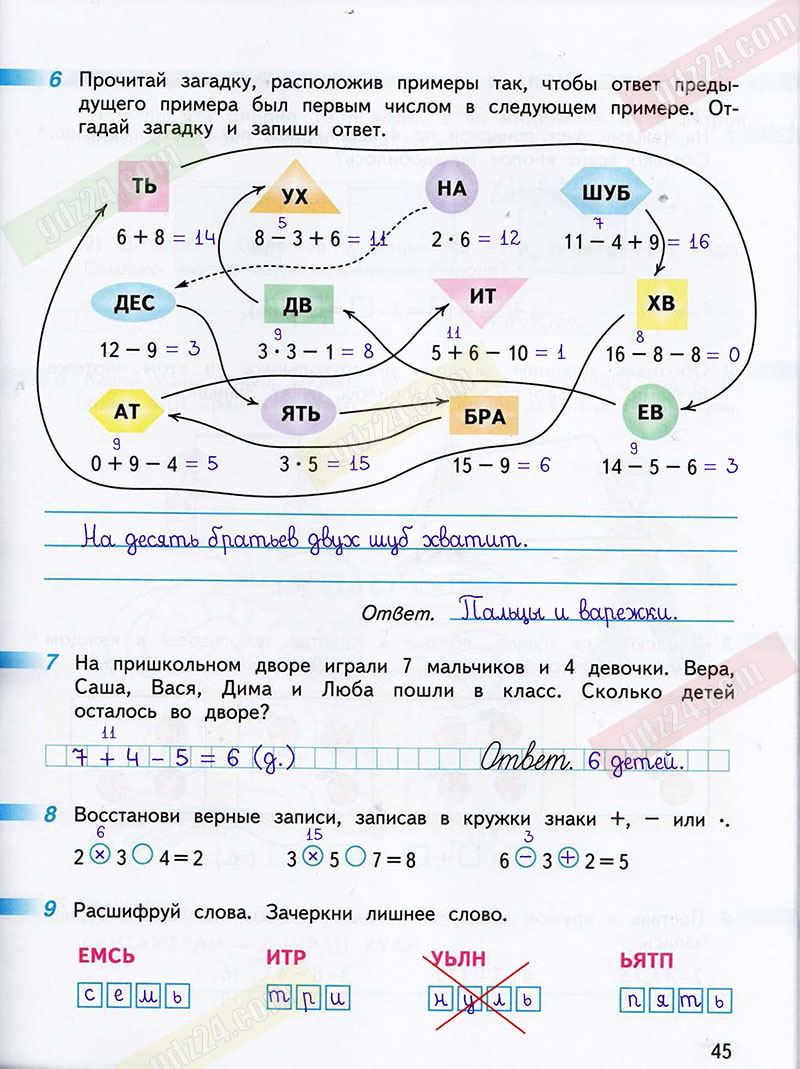 gdz24.com
6 Прочитай загадку, расположив примеры так, чтобы ответ преды-
дущего примера был первым числом в следующем примере. От-
гадай загадку и запиши ответ.
ТЬ УХ НА ШУБ
5 7
6 + 8 = 14 8 − 3 + 6 = 11 2 · 6 = 12 11 − 4 + 9 = 16
ДЕС ДВ ИТ ХВ
9 11 8
12 − 9 = 3 3 · 3 − 1 = 8 5 + 6 − 10 = 1 16 − 8 − 8 = 0
АТ ЯТЬ БРА ЕВ
9 9
0 + 9 − 4 = 5 3 · 5 = 15 15 − 9 = 6 14 − 5 − 6 = 3
На десять братьев двух шуб хватит.
Ответ. Пальцы и варежки.
7 На пришкольном дворе играли 7 мальчиков и 4 девочки. Вера,
Саша, Вася, Дима и Люба пошли в класс. Сколько детей
осталось во дворе?
11
7 + 4 − 5 = 6 (д.) Ответ. 6 детей.
8 Восстанови верные записи, записав в кружки знаки +, − или ·.
6 15 3
2 × 3 ○ 4 = 2 3 × 5 ○ 7 = 8 6 − 3 + 2 = 5
9 Расшифруй слова. Зачеркни лишнее слово.
ЕМСЬ ИТР УЬЛН ЬЯТП
семь три нуль пять
45
gdz24.com
gdz24.com
gdz24.com
gdz24.com